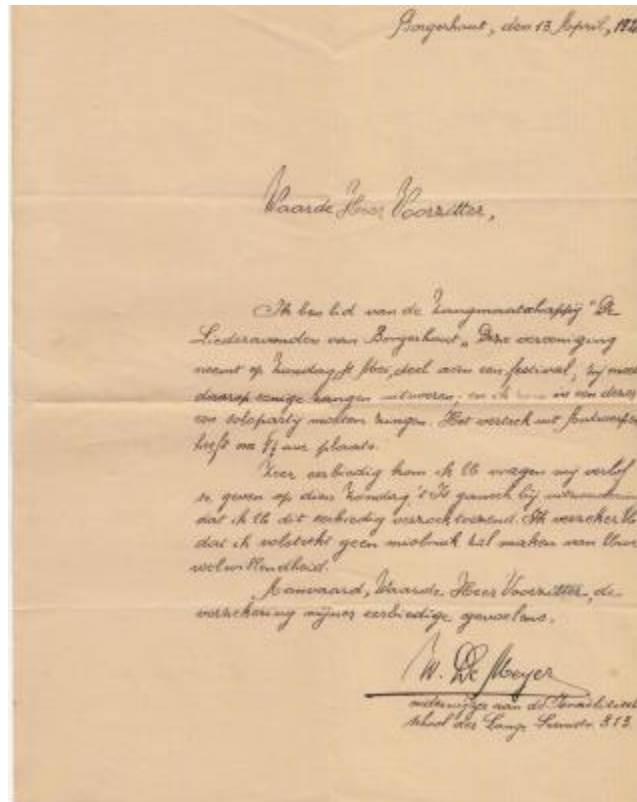 Borgerhout, den 13 April, 192
Waarde Heer Voorzitter,
Ik ben lid van de Zangmaatschappij "De
Liederavonden van Borgerhout„ Deze vereeniging
neemt op Zondag Mei, deel aan een festival, zij moet
daarop eenige zangen uitvoeren, en ik in een dezer
een solopartij moeten zingen. Het vertrek uit Antwerpen
heeft om uur plaats.
Zeer eerbiedig kom ik U vragen mij verlof
te geven op dien Zondag 't Is bij
dat ik U dit eerbiedig verzoek Ik verzeker U
dat ik volstrekt geen misbruik zal maken van Uwe
welwillendheid.
Aanvaard, Waarde Heer Voorzitter, de
verzekering mijner eerbiedige gevoelens.
W. De Meyer
onderwijzer aan de
school der Lange 313